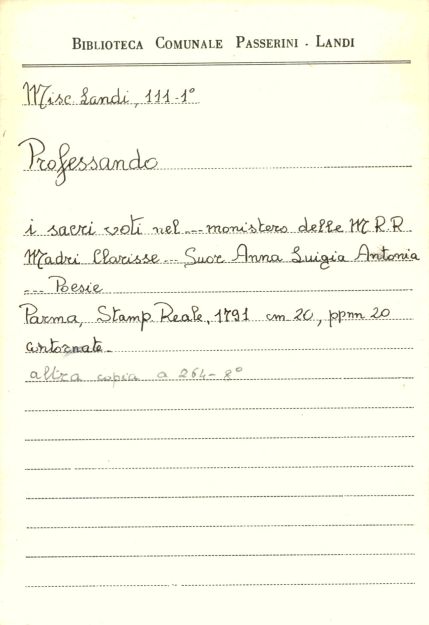 BIBLIOTECA COMUNALE PASSERINI - LANDI
Misc. Landi, 111-1°
Professando
i sacri voti nel --- monistero delle M R.R
Madri Clarisse --- Suor Anna Luigia Antonia
--- Poesie
Parma, Stamp. Reale, 1791 cm 20, ppnn 20
contornate.
altra copia a 264-8°